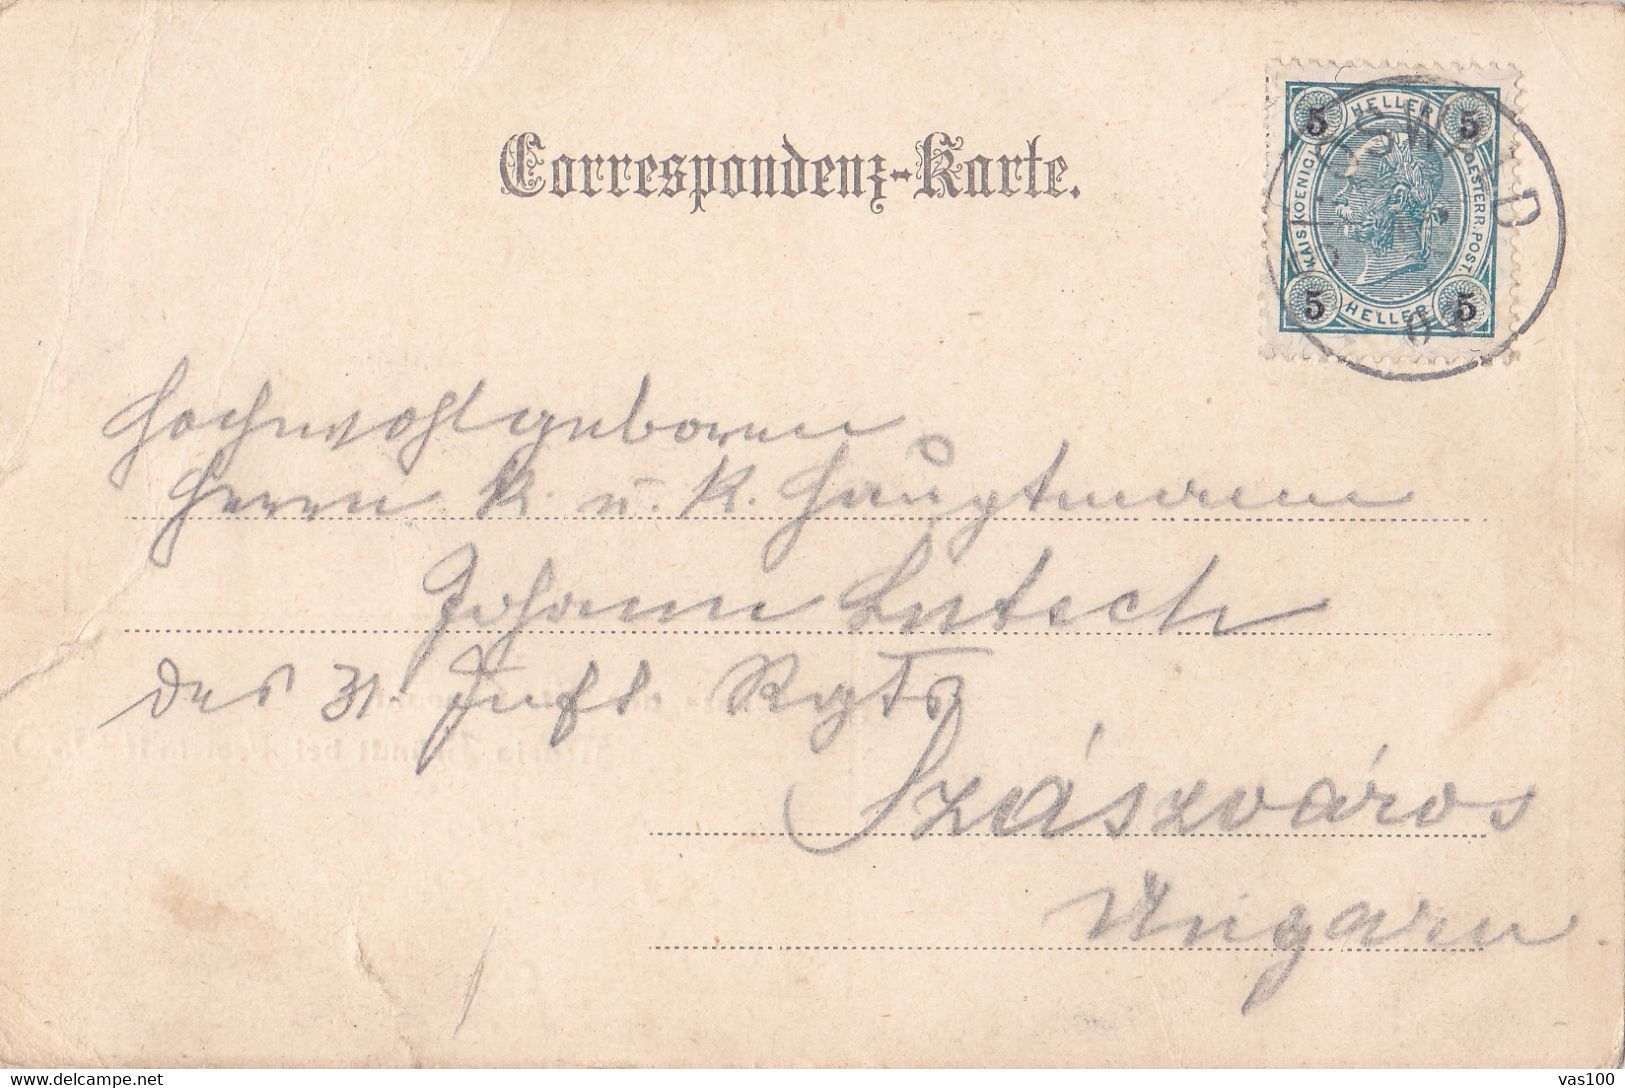 Correspondenz-Karte.
5 HELLER 5
KAIS. KOENIGL. OESTERR. POST.
5 HELLER 5
Hochwohlgeboren
Herrn K. u. K. Hauptmann
Johann Lutsch
des 31. Inft Rgts
Szászváros
Ungarn.
vas100